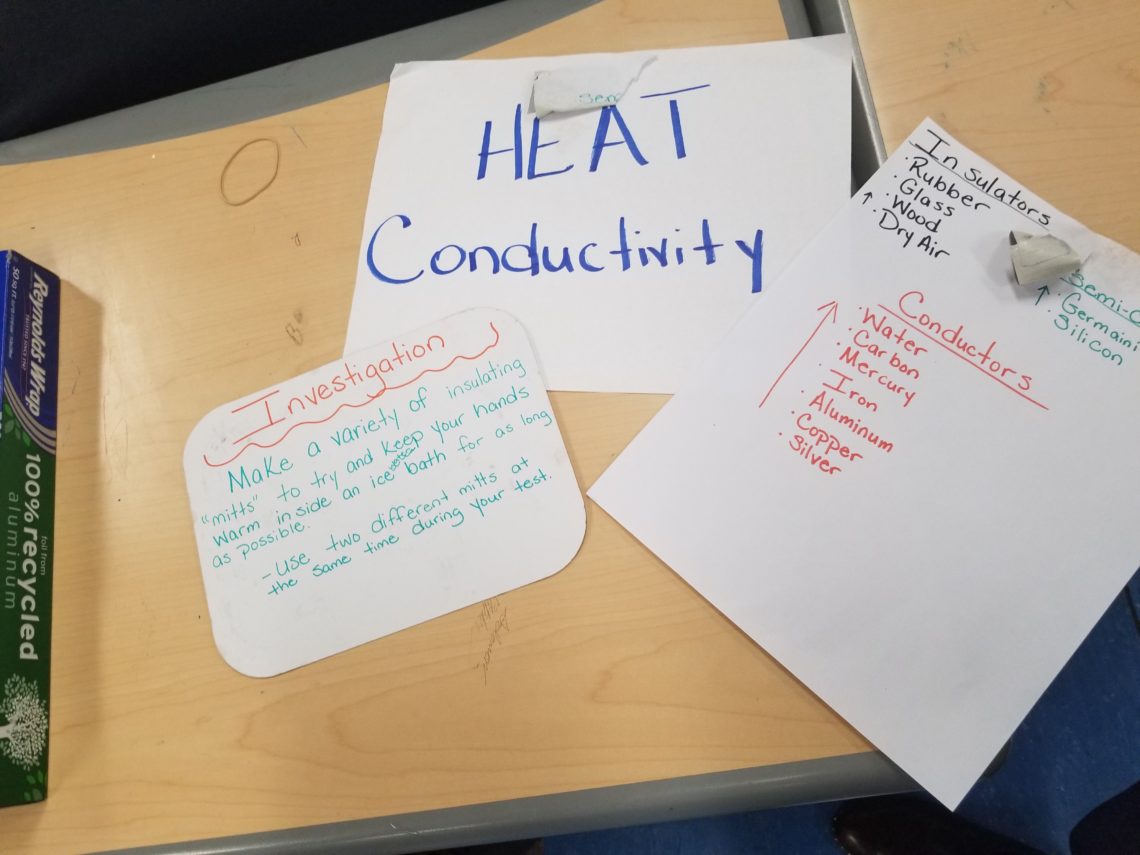 HEAT
Conductivity
Investigation
Make a variety of insulating
"mitts" to try and keep your hands
warm inside an ice water bath for as long
as possible.
- Use two different mitts at
the same time during your test.
Insulators
· Rubber
· Glass
· Wood
· Dry Air
Conductors
· Water
· Carbon
· Mercury
· Iron
· Aluminum
· Copper
· Silver
Semi-C
· Germaini
· Silicon
Reynolds Wrap
100% recycled
aluminum
foil from